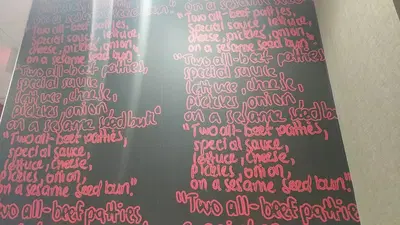 on a sesame seed bun"
"Two all-beef patties,
special sauce, lettuce,
cheese, pickles, onion,
on a sesame seed bun."
"Two all-beef patties,
special sauce
lettuce, cheese,
pickles, onion
on a sesame seed bun"
"Two all-beef patties,
special sauce,
lettuce, cheese,
pickles, onion,
on a sesame seed bun."
"Two all-beef patties
on a sesame seed bun
"Two all-beef patties,
special sauce, lettuce,
cheese, pickles, onion,
on a sesame seed bun."
"Two all-beef patties
special sauce
lettuce, cheese,
pickles, onion
on a sesame seed bun"
"Two all-beef patties,
special sauce,
lettuce, cheese,
pickles, onion,
on a sesame seed bun."
"Two all-beef patties